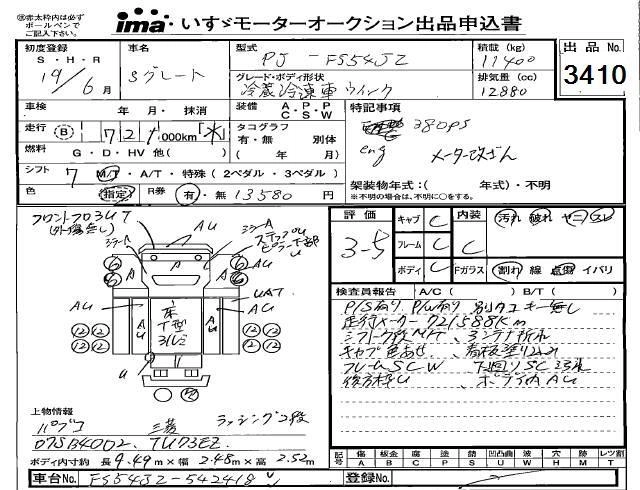 ㊟赤太枠内は必ず
ボールペンで
ご記入下さい。
ima いすゞモーターオークション出品申込書
初度登録
S・H・R
19年6月
車名
Sグレート
型式
PJ - FS54JZ
積載(kg)
11400
出品No.
3410
グレード・ボディ形状
冷蔵冷凍車 ウイング
排気量(cc)
12880
車検
年 月・ 抹消
装備
A・P・P
C・S・W
特記事項
380PS
走行
(B)
721,000km
タコグラフ
有・無 別体
( 年 月)
eng
メーター改ざん
燃料
G・D・HV 他( )
シフト
7 M/T・A/T・特殊(2ペダル・3ペダル)
架装物年式:( 年式)・不明
※不明の場合は、不明に○をする。
色
(指定)
R券
有・無 13580円
フロントフロ3UT
(外傷無し)
評価
3-5
キャブ C
フレーム C
ボディ C
内装
C
Fガラス
汚れ 破れ ヤニ スレ
割れ 線 点傷 イバリ
検査員報告
A/C( )
B/T( )
P/S有り P/W有り 別タコ キー無し
走行メーター 721588km
シフト7段M/T
キャブ色あせ、看板塗り込み
フレームSCW 下廻りSC
後方枠U、ボディ内AU
ミラーA
AU
ミラーA
ステップU
ピラー下部
U
AU
UAT
AU
床
T型
312
上物情報
パブコ
三菱
ラッシング2段
07SB40D2、TU73EZ
ボディ内寸約 長 9.49m×幅 2.48m×高 2.52m
記号
傷 A
板金 B
腐 C
塗 P
錆 S
凹凸曲 U
波 W
穴 H
跡 M
レツ割 T
車台No.
FS54JZ-542418
登録No.